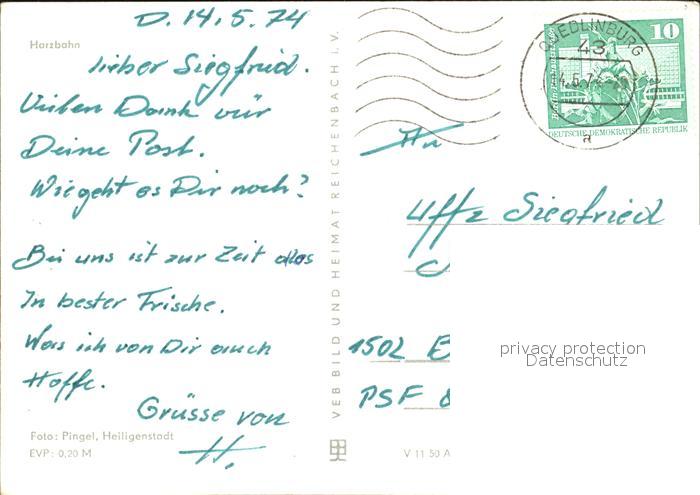 Harzbahn
D. 14.5.74
lieber Siegfried.
Vielen Dank vür
Deine Post.
Wie geht es Dir noch?
Bei uns ist zur Zeit alles
In bester Frische.
Was ich von Dir auch
Hoffe.
Grüsse von
H.
Foto: Pingel, Heiligenstadt
EVP: 0,20 M
VEB BILD UND HEIMAT REICHENBACH I. V.
V 11 50 A
QUEDLINBURG
431
a
10
DEUTSCHE DEMOKRATISCHE REPUBLIK
An
Uffz Siegfried
1502 B
PSF 8
privacy protection
Datenschutz